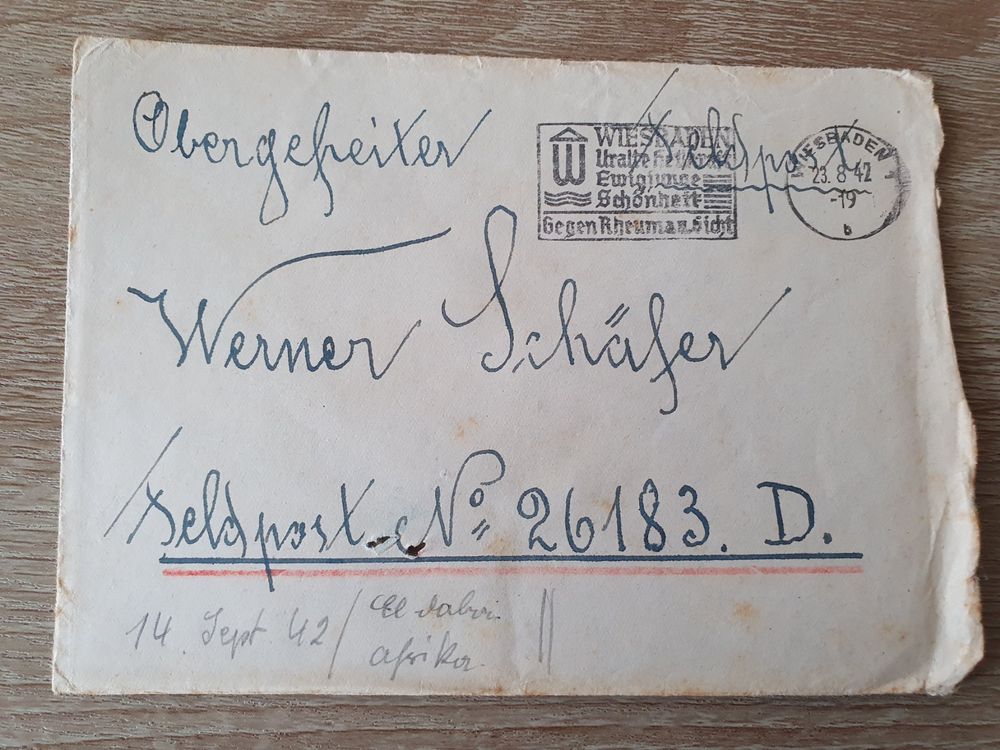 Obergefreiter
Feldpost
WIESBADEN
Uralte Heilkraft
Ewigjunge
Schönheit
Gegen Rheuma u. Gicht
WIESBADEN 1
23.8.42
-19
b
Werner Schäfer
Feldpost No 26183. D.
14. Sept. 42 / El daba.
afrika. ||